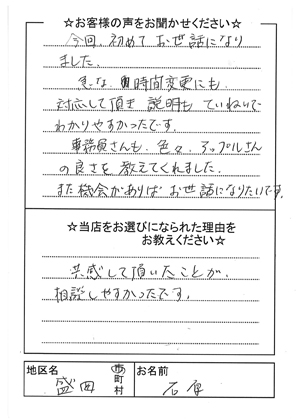 ☆お客様の声をお聞かせください☆
今回、初めてお世話になり
ました。
急な時間変更にも
対応して頂き 説明も ていねいで
わかりやすかったです。
事務員さんも、色々、アップルさん
の良さを教えてくれました。
また機会があればお世話になりたいです。
☆当店をお選びになられた理由を
お教えください☆
共感して頂いたことが、
相談しやすかったです。
地区名
盛岡
市
町
村
お名前
石